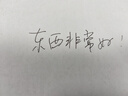 东西非常好！